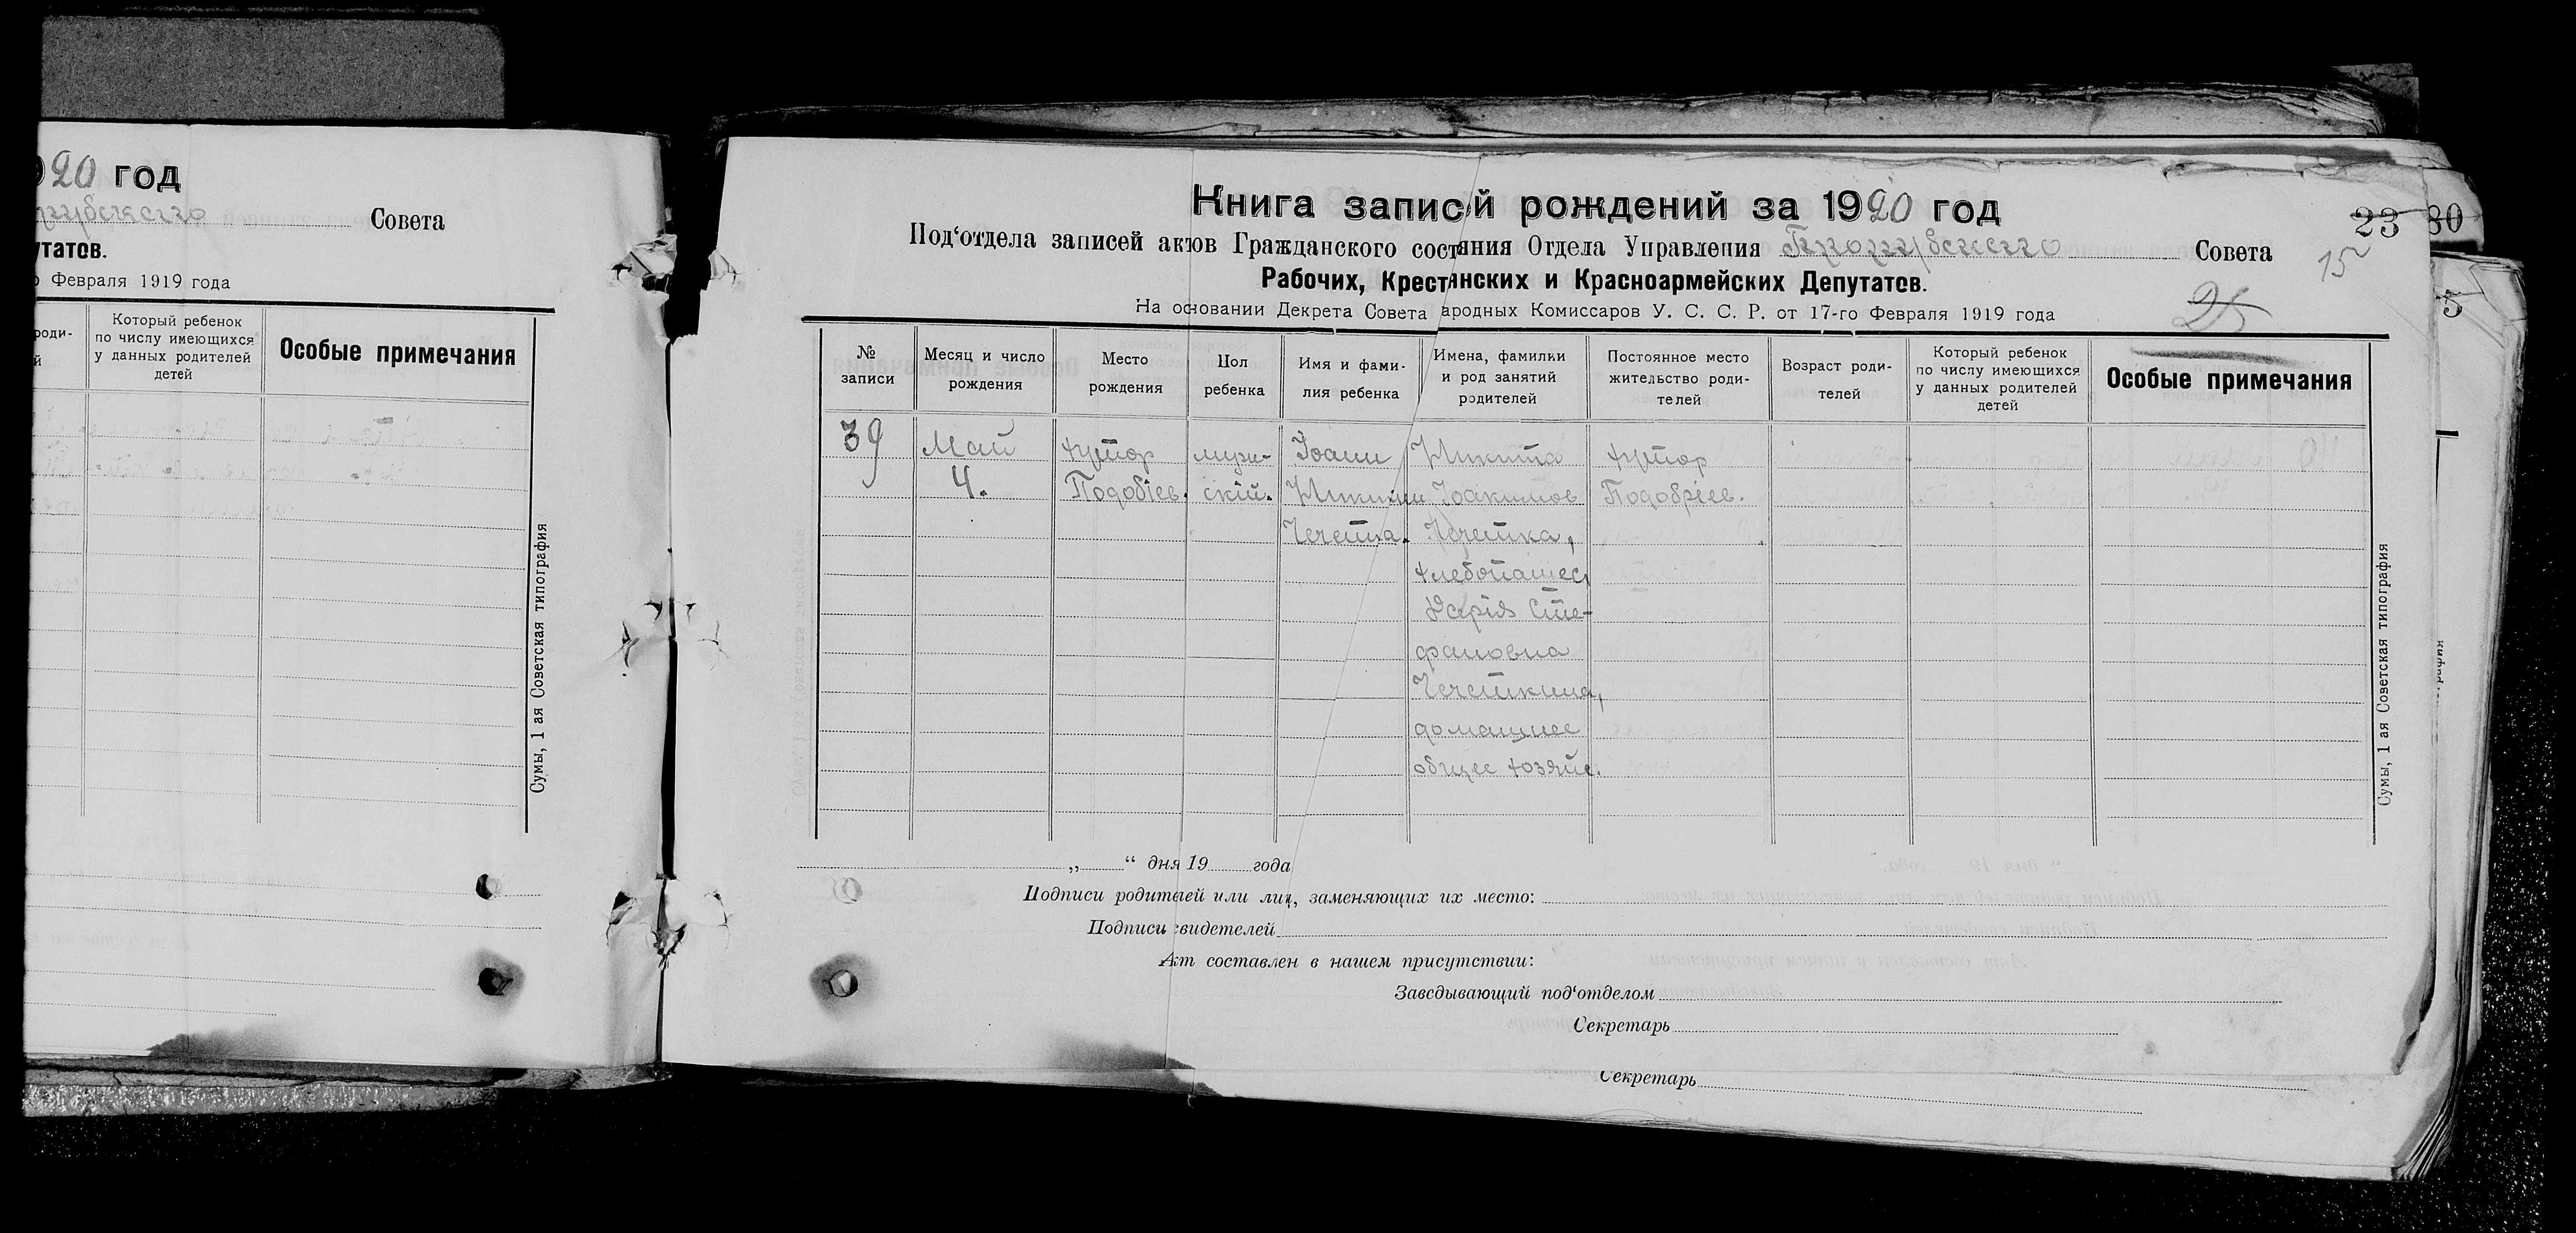 20 год
Совета
татов.
Февраля 1919 года
роди-
й
Который ребенок
по числу имеющихся
у данных родителей
детей
Особые примечания
Сумы, 1 ая Советская типография
Книга записей рождений за 1920 год
23
30
Под‘отдела записей актов Гражданского состяния Отдела Управления Совета
15
Рабочих, Крестянских и Красноармейских Депутатов.
На основании Декрета Совета ародных Комиссаров У. С. С. Р. от 17-го Февраля 1919 года
25
5
№
записи
Месяц и число
рождения
Место
рождения
Пол
ребенка
Имя и фами-
лия ребенка
Имена, фамилки
и род занятий
родителей
Постоянное место
жительство роди-
телей
Возраст роди-
телей
Который ребенок
по числу имеющихся
у данных родителей
детей
Особые примечания
39
Май
4.
хутор
Подобіев.
муж-
скій.
Іоанн
Никитин
Чечета.
Никита
Іоакимов
Чечетка,
хлебопашец,
Марія Сте-
фановна
Чечеткина,
домашнее
общее хозяйс.
хутор
Подобріев.
Сумы, 1 ая Советская типография
„ “ дня 19 года
Подписи родителей или лиц, заменяющих их место:
Подписи свидетелей
Акт составлен в нашем присутствии:
Заведывающий под‘отделом
Секретарь
Секретарь